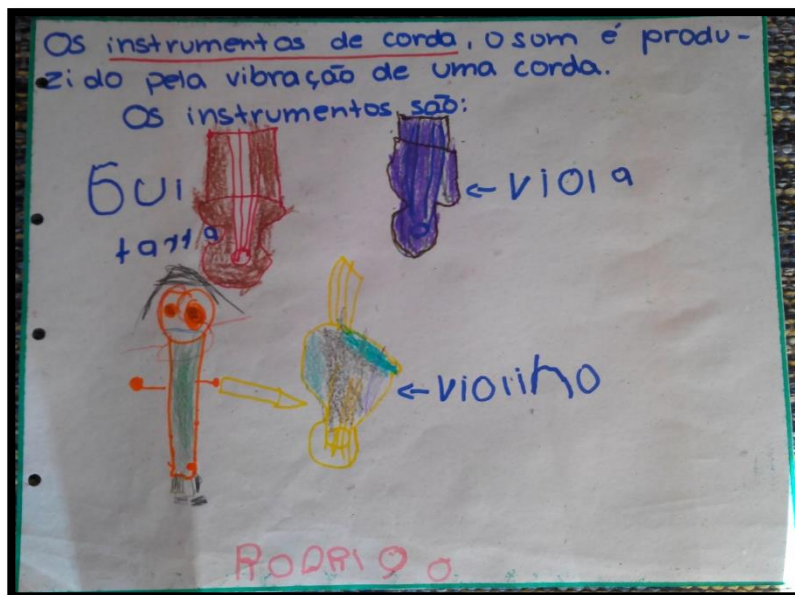 Os instrumentos de corda, o som é produ-
zido pela vibração de uma corda.
Os instrumentos são:
Gui
tarra
← viola
← violino
RODRIGO